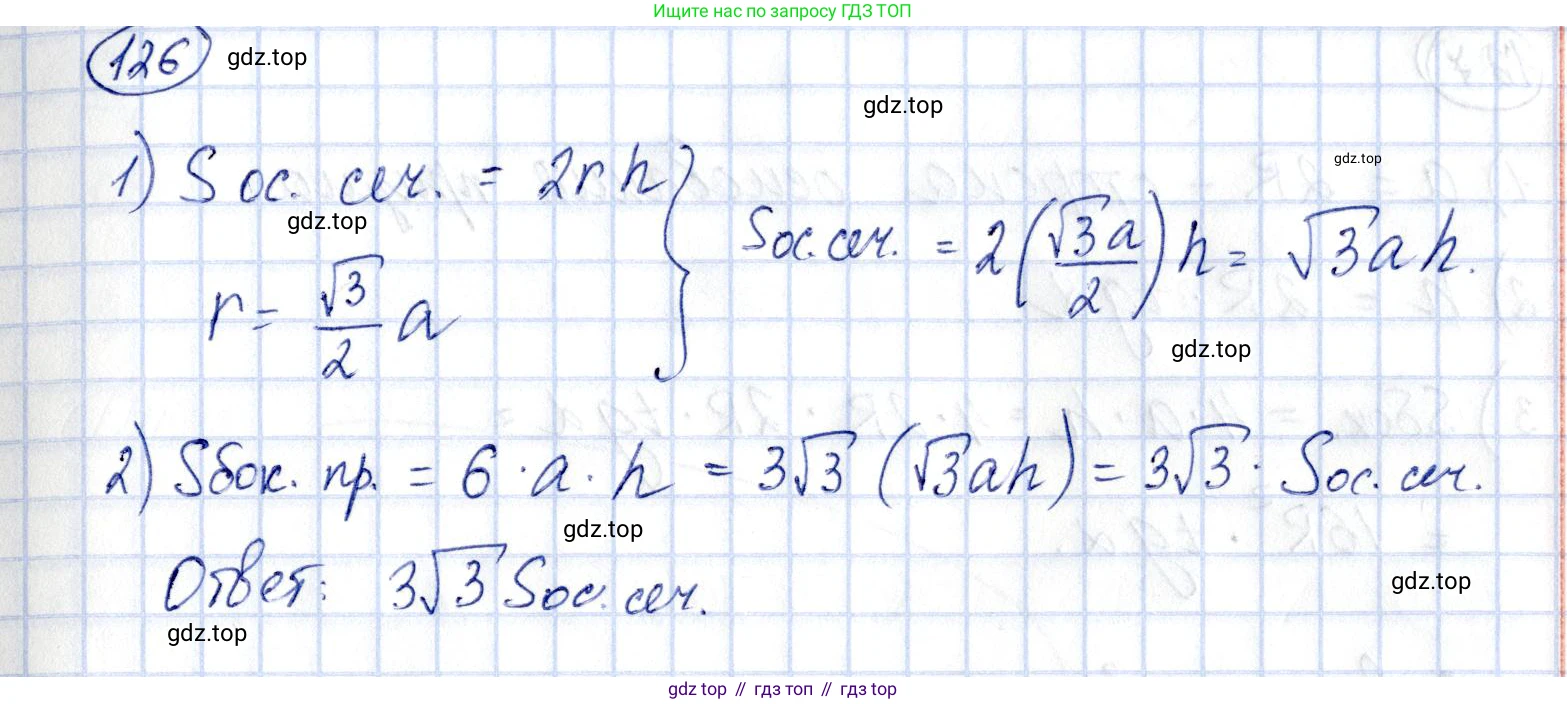 Ищите нас по запросу ГДЗ ТОП
126 gdz.top
gdz.top
1) Sос. сеч. = 2rh
gdz.top
gdz.top
r = √3/2 a
} Sос.сеч. = 2(√3a/2)h = √3ah.
gdz.top
2) Sбок. пр. = 6·a·h = 3√3 (√3ah) = 3√3 · Sос. сеч.
gdz.top
Ответ: 3√3 Sос. сеч.
gdz.top
gdz.top
gdz top // гдз топ // гдз top